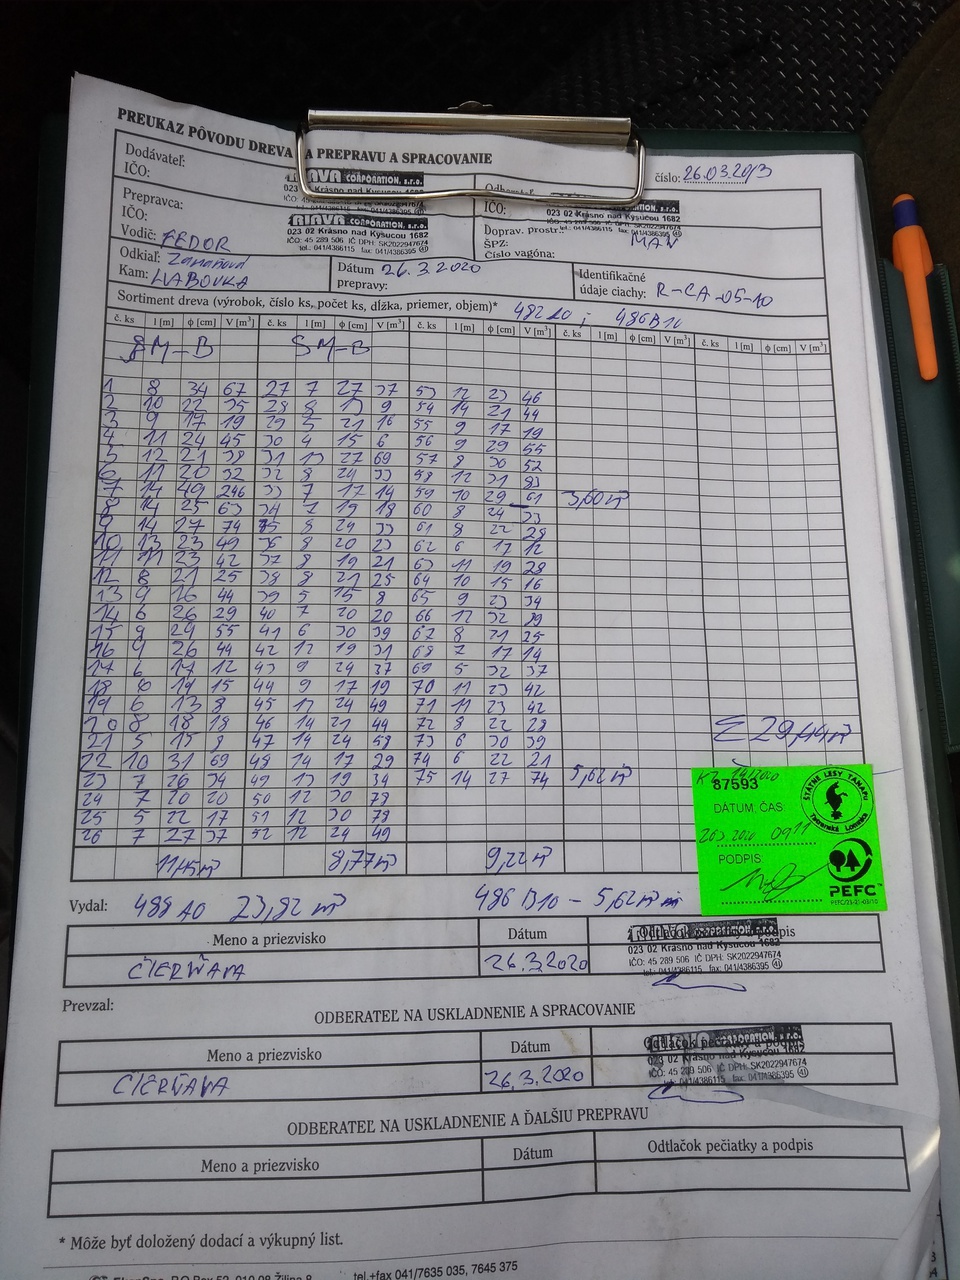 PREUKAZ PÔVODU DREVA NA PREPRAVU A SPRACOVANIE
číslo: 26.03.20/3
Dodávateľ:
IČO:
CORPORATION, s.r.o.
023 02 Krásno nad Kysucou 1682
IČO:
CORPORATION, s.r.o.
023 02 Krásno nad Kysucou 1682
IČO: 45 289 506 IČ DPH: SK2022947674
tel.: 041/4386115 fax: 041/4386395
Prepravca:
IČO:
RIAVA CORPORATION, s.r.o.
023 02 Krásno nad Kysucou 1682
IČO: 45 289 506 IČ DPH: SK2022947674
tel.: 041/4386115 fax: 041/4386395
Vodič: FEDOR
Doprav. prostr.: MAN
ŠPZ:
Číslo vagóna:
Odkiaľ:
Kam: HABOVKA
Dátum prepravy: 26.3.2020
Identifikačné údaje ciachy: R-CA-05-10
Sortiment dreva (výrobok, číslo ks, počet ks, dĺžka, priemer, objem)* ; 486B10
č. ks l [m] ϕ [cm] V [m³] č. ks l [m] ϕ [cm] V [m³] č. ks l [m] ϕ [cm] V [m³] č. ks l [m] ϕ [cm] V [m³] č. ks l [m] ϕ [cm] V [m³]
SM-B SM-B
1 8 34 67 27 7 27 37 53 12 23 46
2 10 22 35 28 8 13 9 54 14 21 44
3 9 17 19 29 5 21 16 55 9 17 19
4 11 24 45 30 4 15 6 56 9 29 55
5 12 21 38 31 13 27 69 57 8 30 52
6 11 20 32 32 8 24 33 58 12 31 83
7 14 49 246 33 7 17 14 59 10 29 61 3,60 m³
8 14 25 63 34 7 19 18 60 8 24 33
9 14 27 74 35 8 24 33 61 8 22 28
10 13 23 49 36 8 20 23 62 6 17 12
11 11 23 42 37 8 19 21 63 11 19 28
12 8 21 25 38 8 21 25 64 10 15 16
13 9 26 44 39 5 15 8 65 9 23 34
14 6 26 29 40 7 20 20 66 12 32 29
15 9 29 55 41 6 30 39 67 8 21 25
16 9 26 44 42 12 19 31 68 7 17 14
17 6 17 12 43 9 24 37 69 5 32 37
18 6 19 15 44 9 17 19 70 11 23 42
19 6 13 8 45 11 24 49 71 11 23 42
20 8 18 18 46 14 21 44 72 8 22 28 Σ 29,44 m³
21 5 15 8 47 14 24 58 73 6 30 39
22 10 31 69 48 14 17 29 74 6 22 21
23 7 26 34 49 13 19 34 75 14 27 74 5,62 m³
24 7 20 20 50 12 30 78
25 5 22 17 51 12 30 78
26 7 27 37 52 12 24 49
11,45 m³ 8,77 m³ 9,22 m³
87593
DÁTUM, ČAS:
26.3.2020 0911
PODPIS:
ŠTÁTNE LESY TANAPU
Tatranská Lomnica
PEFC
Vydal: 488 A0 23,82 m³ 486 B10 - 5,62 m³
Meno a priezvisko Dátum Odtlačok pečiatky a podpis
ČIERŇAVA 26.3.2020
023 02 Krásno nad Kysucou 1682
IČO: 45 289 506 IČ DPH: SK2022947674
tel.: 041/4386115 fax: 041/4386395
Prevzal:
ODBERATEĽ NA USKLADNENIE A SPRACOVANIE
Meno a priezvisko Dátum Odtlačok pečiatky a podpis
ČIERŇAVA 26.3.2020
023 02 Krásno nad Kysucou 1682
IČO: 45 289 506 IČ DPH: SK2022947674
tel.: 041/4386115 fax: 041/4386395
ODBERATEĽ NA USKLADNENIE A ĎALŠIU PREPRAVU
Meno a priezvisko Dátum Odtlačok pečiatky a podpis
* Môže byť doložený dodací a výkupný list.
tel.+fax 041/7635 035, 7645 375